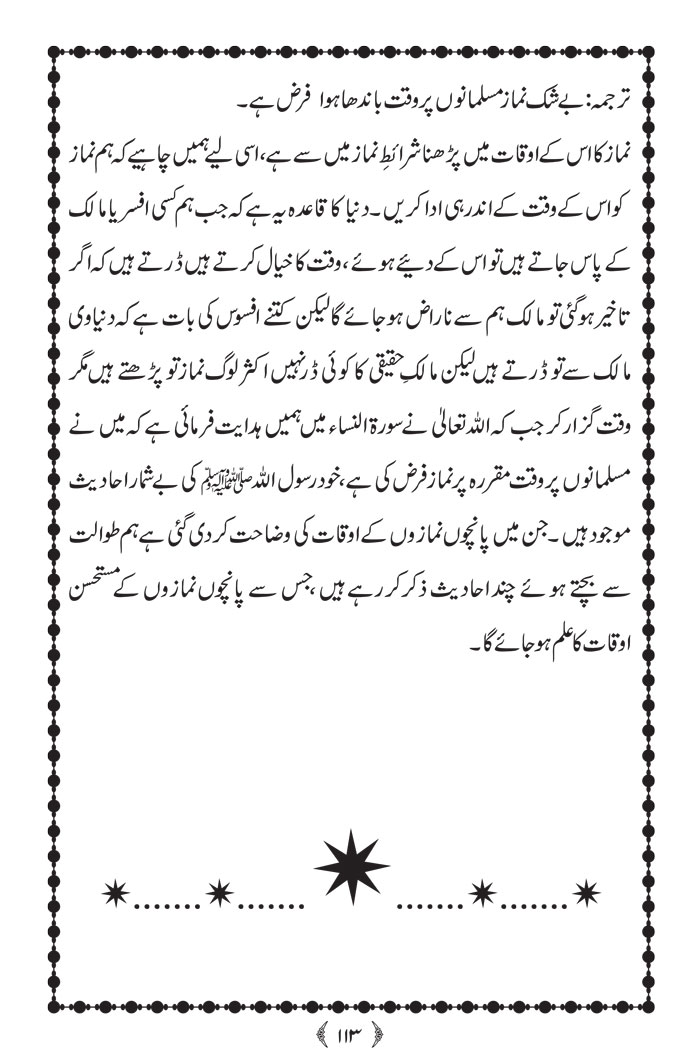 ترجمہ: بے شک نماز مسلمانوں پر وقت باندھا ہوا فرض ہے۔
نماز کا اس کے اوقات میں پڑھنا شرائطِ نماز میں سے ہے، اسی لیے ہمیں چاہیے کہ ہم نماز
کو اس کے وقت کے اندر ہی ادا کریں۔ دنیا کا قاعدہ یہ ہے کہ جب ہم کسی افسر یا مالک
کے پاس جاتے ہیں تو اس کے دئیے ہوئے، وقت کا خیال کرتے ہیں ڈرتے ہیں کہ اگر
تاخیر ہوگئی تو مالک ہم سے ناراض ہوجائے گا لیکن کتنے افسوس کی بات ہے کہ دنیاوی
مالک سے تو ڈرتے ہیں لیکن مالکِ حقیقی کا کوئی ڈر نہیں اکثر لوگ نماز تو پڑھتے ہیں مگر
وقت گزار کر جب کہ اللہ تعالیٰ نے سورۃ النساء میں ہمیں ہدایت فرمائی ہے کہ میں نے
مسلمانوں پر وقت مقررہ پر نماز فرض کی ہے، خود رسول اللہ ﷺ کی بے شمار احادیث
موجود ہیں۔ جن میں پانچوں نمازوں کے اوقات کی وضاحت کردی گئی ہے ہم طوالت
سے بچتے ہوئے چند احادیث ذکر کر رہے ہیں، جس سے پانچوں نمازوں کے مستحسن
اوقات کا علم ہوجائے گا۔
﴿۱۱۳﴾